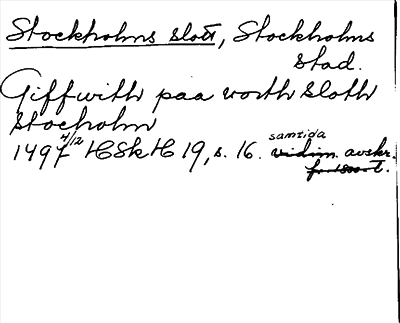 Stockholms slott, Stockholms
stad.
Giffwith paa worth Sloth
Stocholm
1497 4/12 HSkH 19, s. 16. samtida vidim. avskr.